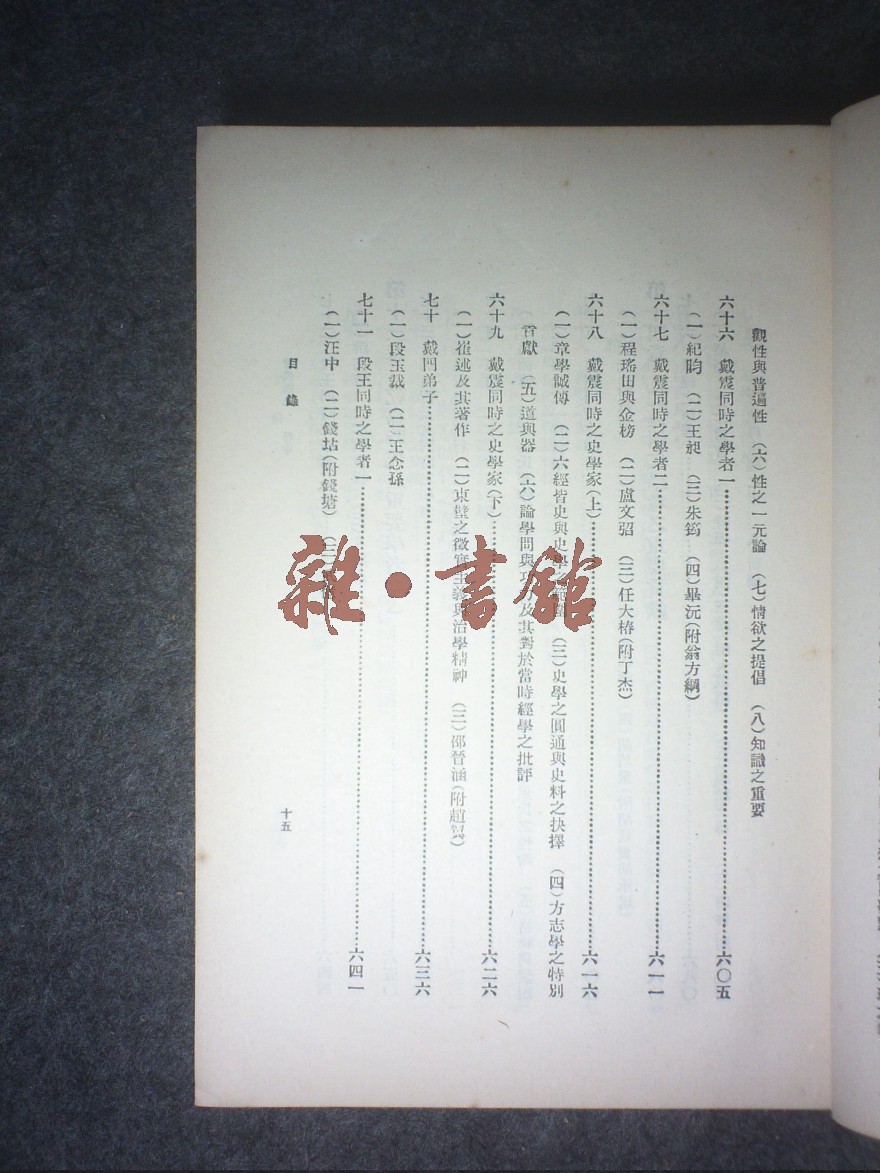 觀性與普遍性　（六）性之一元論　（七）情欲之提倡　（八）知識之重要
六十六　戴震同時之學者一……六〇五
（一）紀昀　（二）王昶　（三）朱筠　（四）畢沅（附翁方綱）
六十七　戴震同時之學者二……六一一
（一）程瑤田與金榜　（二）盧文弨　（三）任大椿（附丁杰）
六十八　戴震同時之史學家（上）……六一六
（一）章學誠傳　（二）六經皆史與史學　（三）史學之圓通與史料之抉擇　（四）方志學之特別
貢獻　（五）道與器　（六）論學問與功　及其對於當時經學之批評
六十九　戴震同時之史學家（下）……六二六
（一）崔述及其著作　（二）東壁之徵實主義與治學精神　（三）邵晉涵（附趙翼）
七十　戴門弟子……六三六
（一）段玉裁　（二）王念孫
七十一　段王同時之學者一……六四一
（一）汪中　（二）錢坫（附錢塘）　（三）
目錄
十五
雜·書館